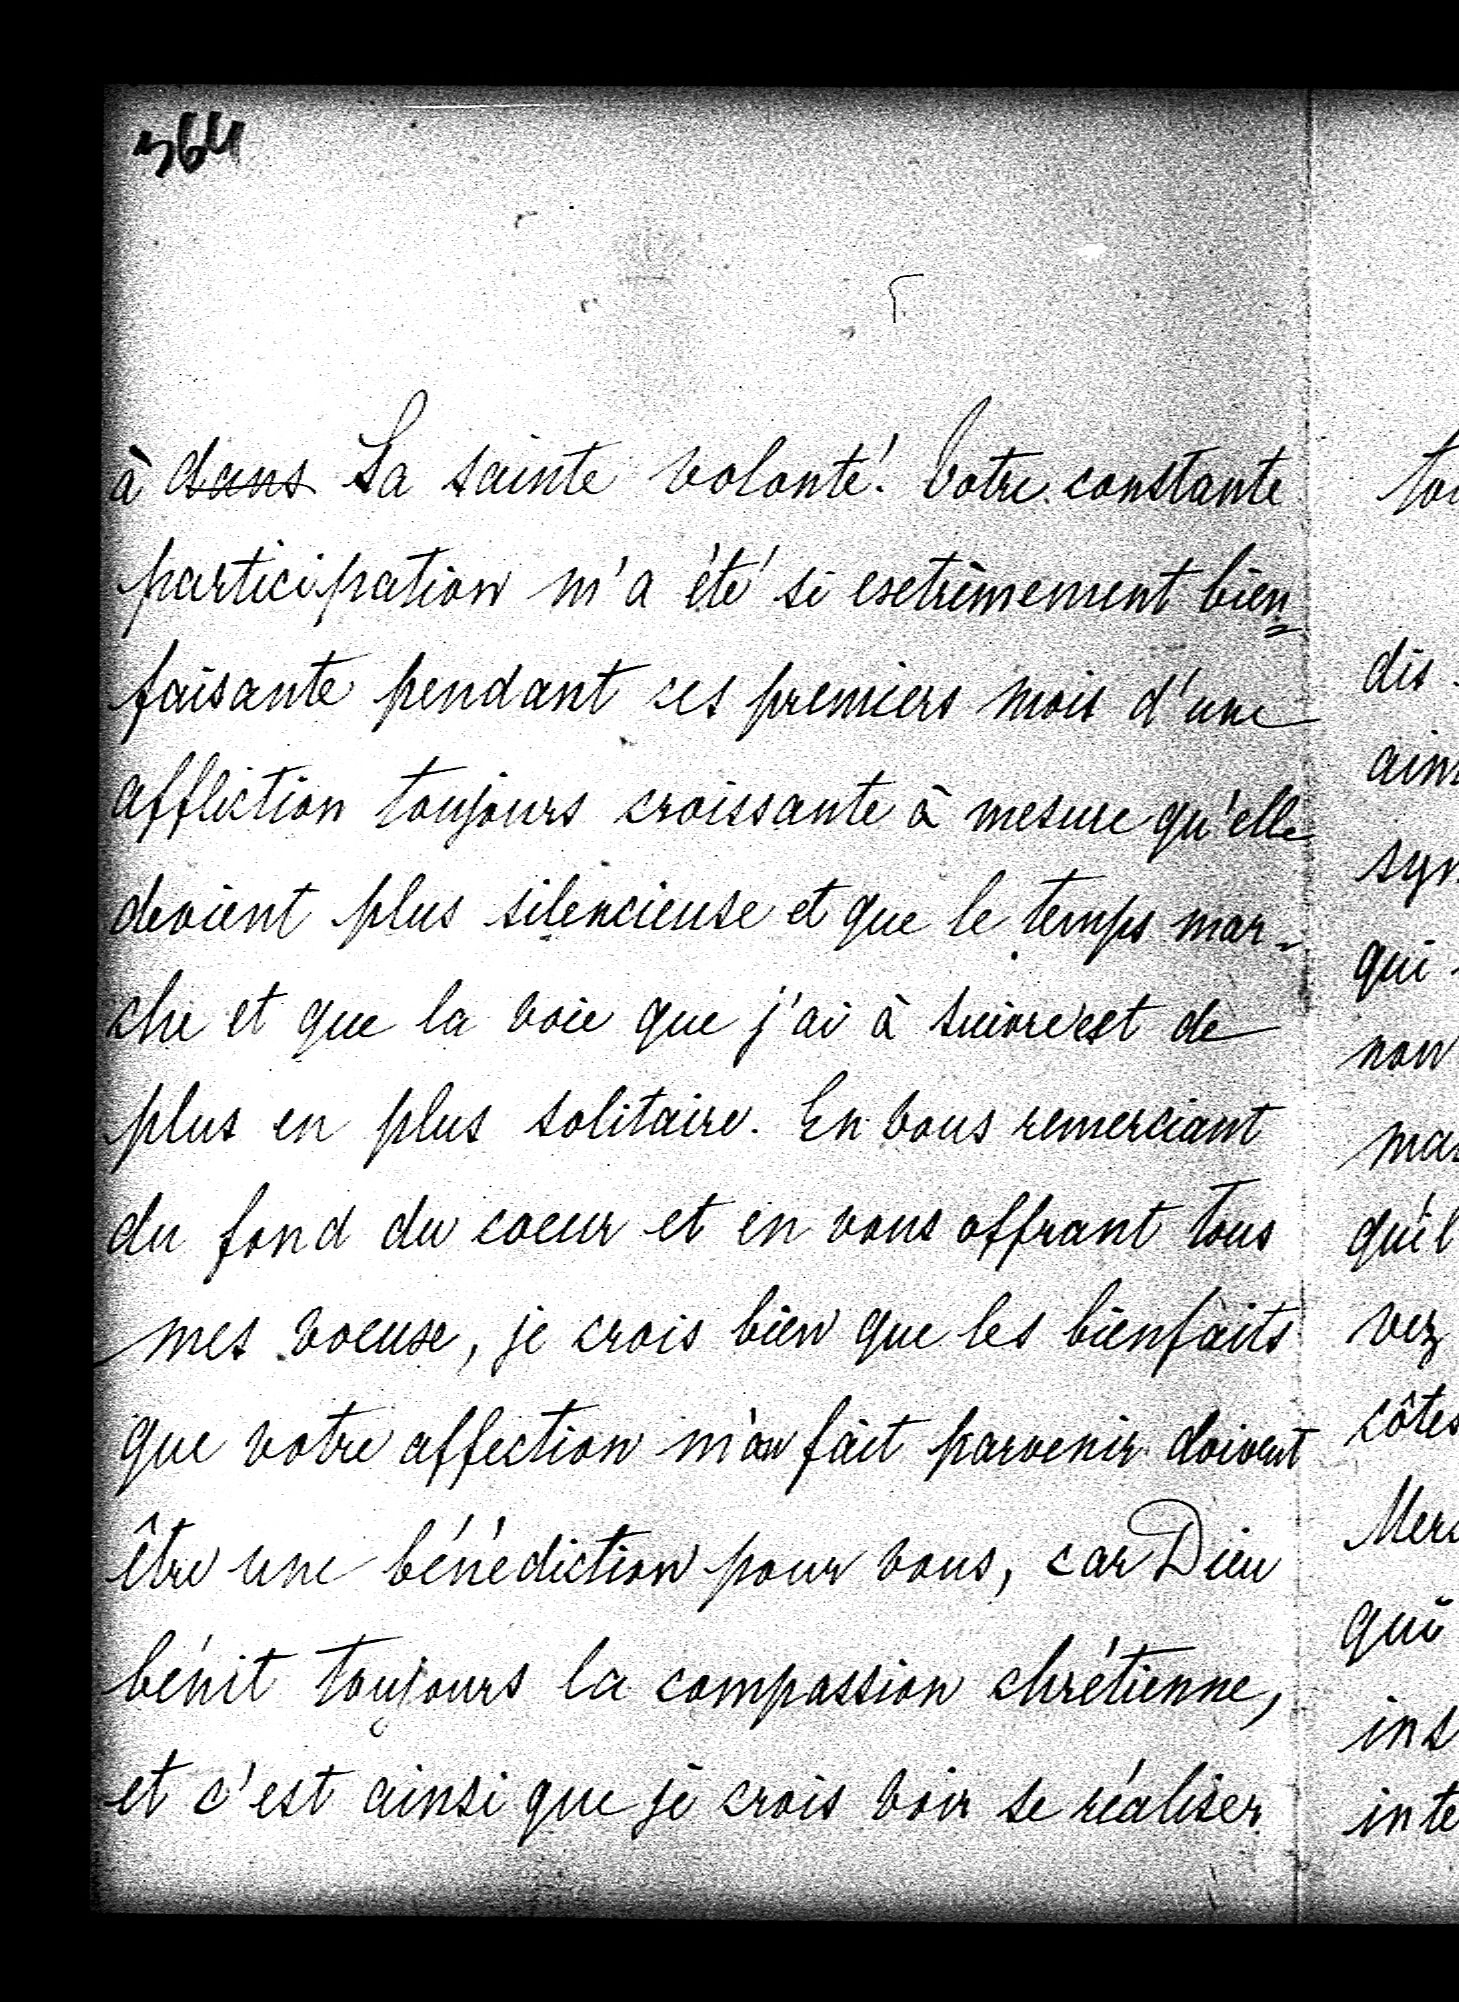 364
à dans Sa sainte volonté! Votre constante
participation m'a été si extrêmement bien
faisante pendant ces premiers mois d'une
affliction toujours croissante à mesure qu'elle
devient plus silencieuse et que le temps mar-
che et que la voie que j'ai à suivre est de
plus en plus solitaire. En vous remerciant
du fond du coeur et en vous offrant tous
mes voeux, je crois bien que les bienfaits
que votre affection m'a fait parvenir doivent
être une bénédiction pour vous, car Dieu
bénit toujours la compassion chrétienne,
et c'est ainsi que je crois voir se réaliser
dis
qui
vez
côtes
qui